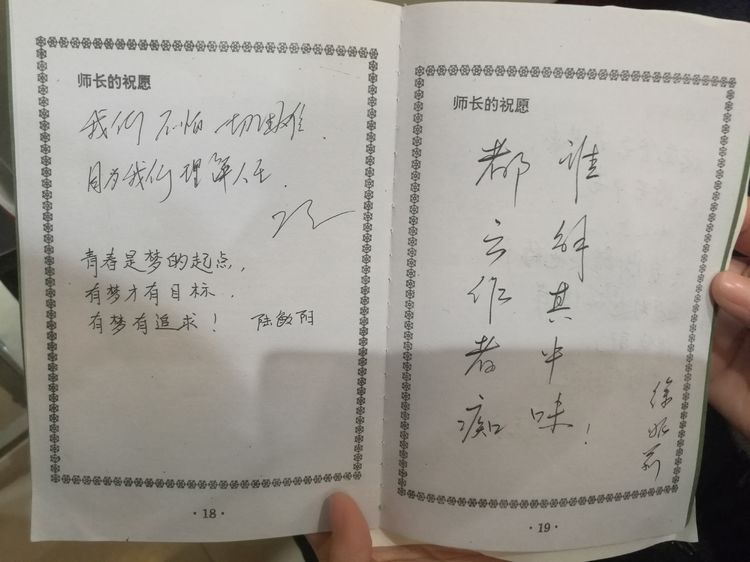 师长的祝愿
我们不怕一切困难.
因为我们理解人生.
青春是梦的起点,
有梦才有目标.
有梦有追求! 陆敏阳
·18·
师长的祝愿
都云作者痴
谁解其中味!
徐
·19·